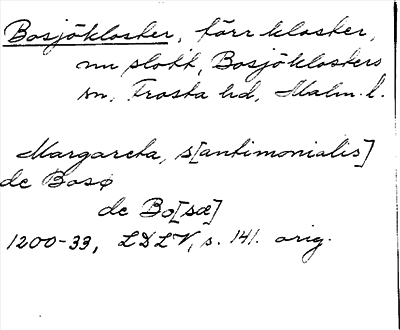 Bosjökloster, förr kloster,
nu slott, Bosjöklosters
sn, Frosta hd, Malm. l.
Margareta, s[antimonialis]
de Bosø
de Bo[sæ]
1200-33, LDLV, s. 141. orig.